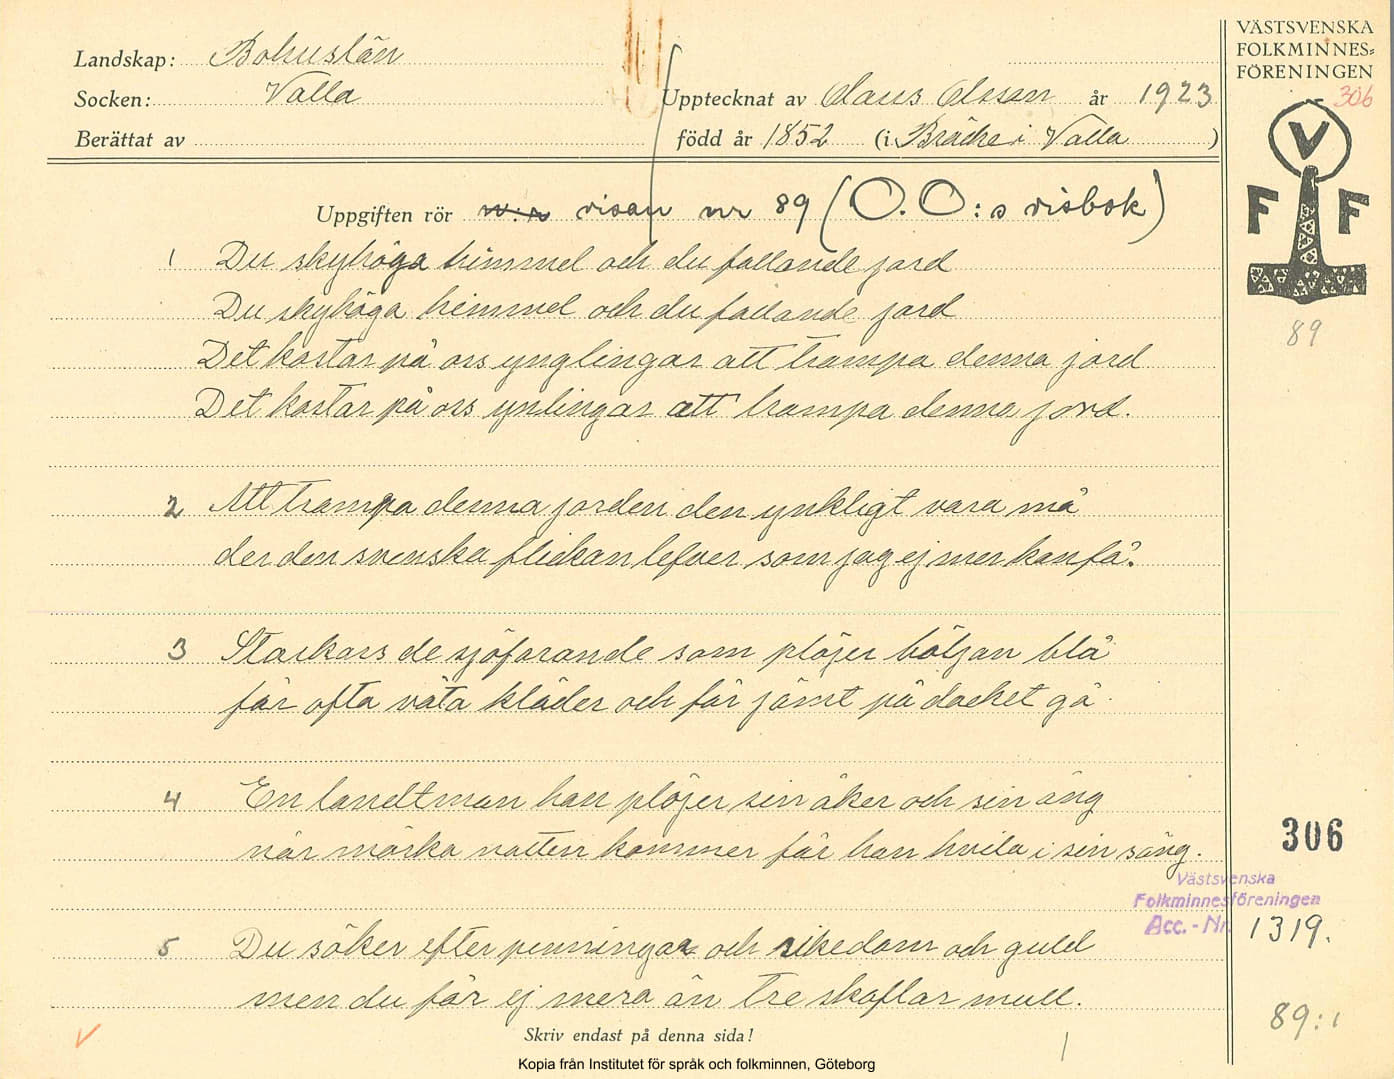 Landskap: Bohuslän
Socken: Valla
Berättat av
Upptecknat av Claus Olsson år 1923
född år 1852 (i Bräcke i Valla)
VÄSTSVENSKA
FOLKMINNES-
FÖRENINGEN
306
V
F F
89
Uppgiften rör visan nr 89 (O. O:s visbok)
1 Du skyhöga himmel och du fallande jord
Du skyhöga himmel och du fallande jord
Det kostar på oss ynglingar att trampa denna jord
Det kostar på oss ynlingar att trampa denna jord.
2 Att trampa denna jorden den ynkligt vara må
der den svenska flickan lefver som jag ej mer kan få.
3 Stackars de sjöfarande som plöjer böljan blå
får ofta våta kläder och får jämt på däcket gå.
4 En landtman han plöjer sin åker och sin äng
när mörka natten kommer får han hvila i sin säng.
5 Du söker efter penningar och rikedom och guld
men du får ej mera än tre skoflar mull.
306
Västsvenska
Folkminnesföreningen
Acc.-Nr. 1319.
89:1
Skriv endast på denna sida!
Kopia från Institutet för språk och folkminnen, Göteborg